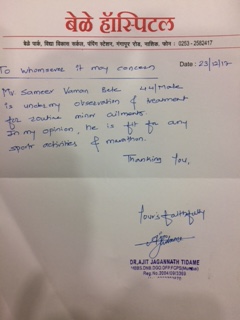 बेळे हॉस्पिटल
बेळे पार्क, विद्या विकास सर्कल, पंपिंग स्टेशन, गंगापूर रोड, नाशिक. फोन : 0253 - 2582417
To Whomsoever It may concern Date : 23/12/17
Mr. Sameer Vaman Bele 44/Male
is under my observation & treatment
for routine minor ailments.
In my opinion, He is fit for any
sports activities & marathon.
Thanking You,
Yours faithfully
DR. AJIT JAGANNATH TIDAME
MBBS, DNB,
Reg. No.